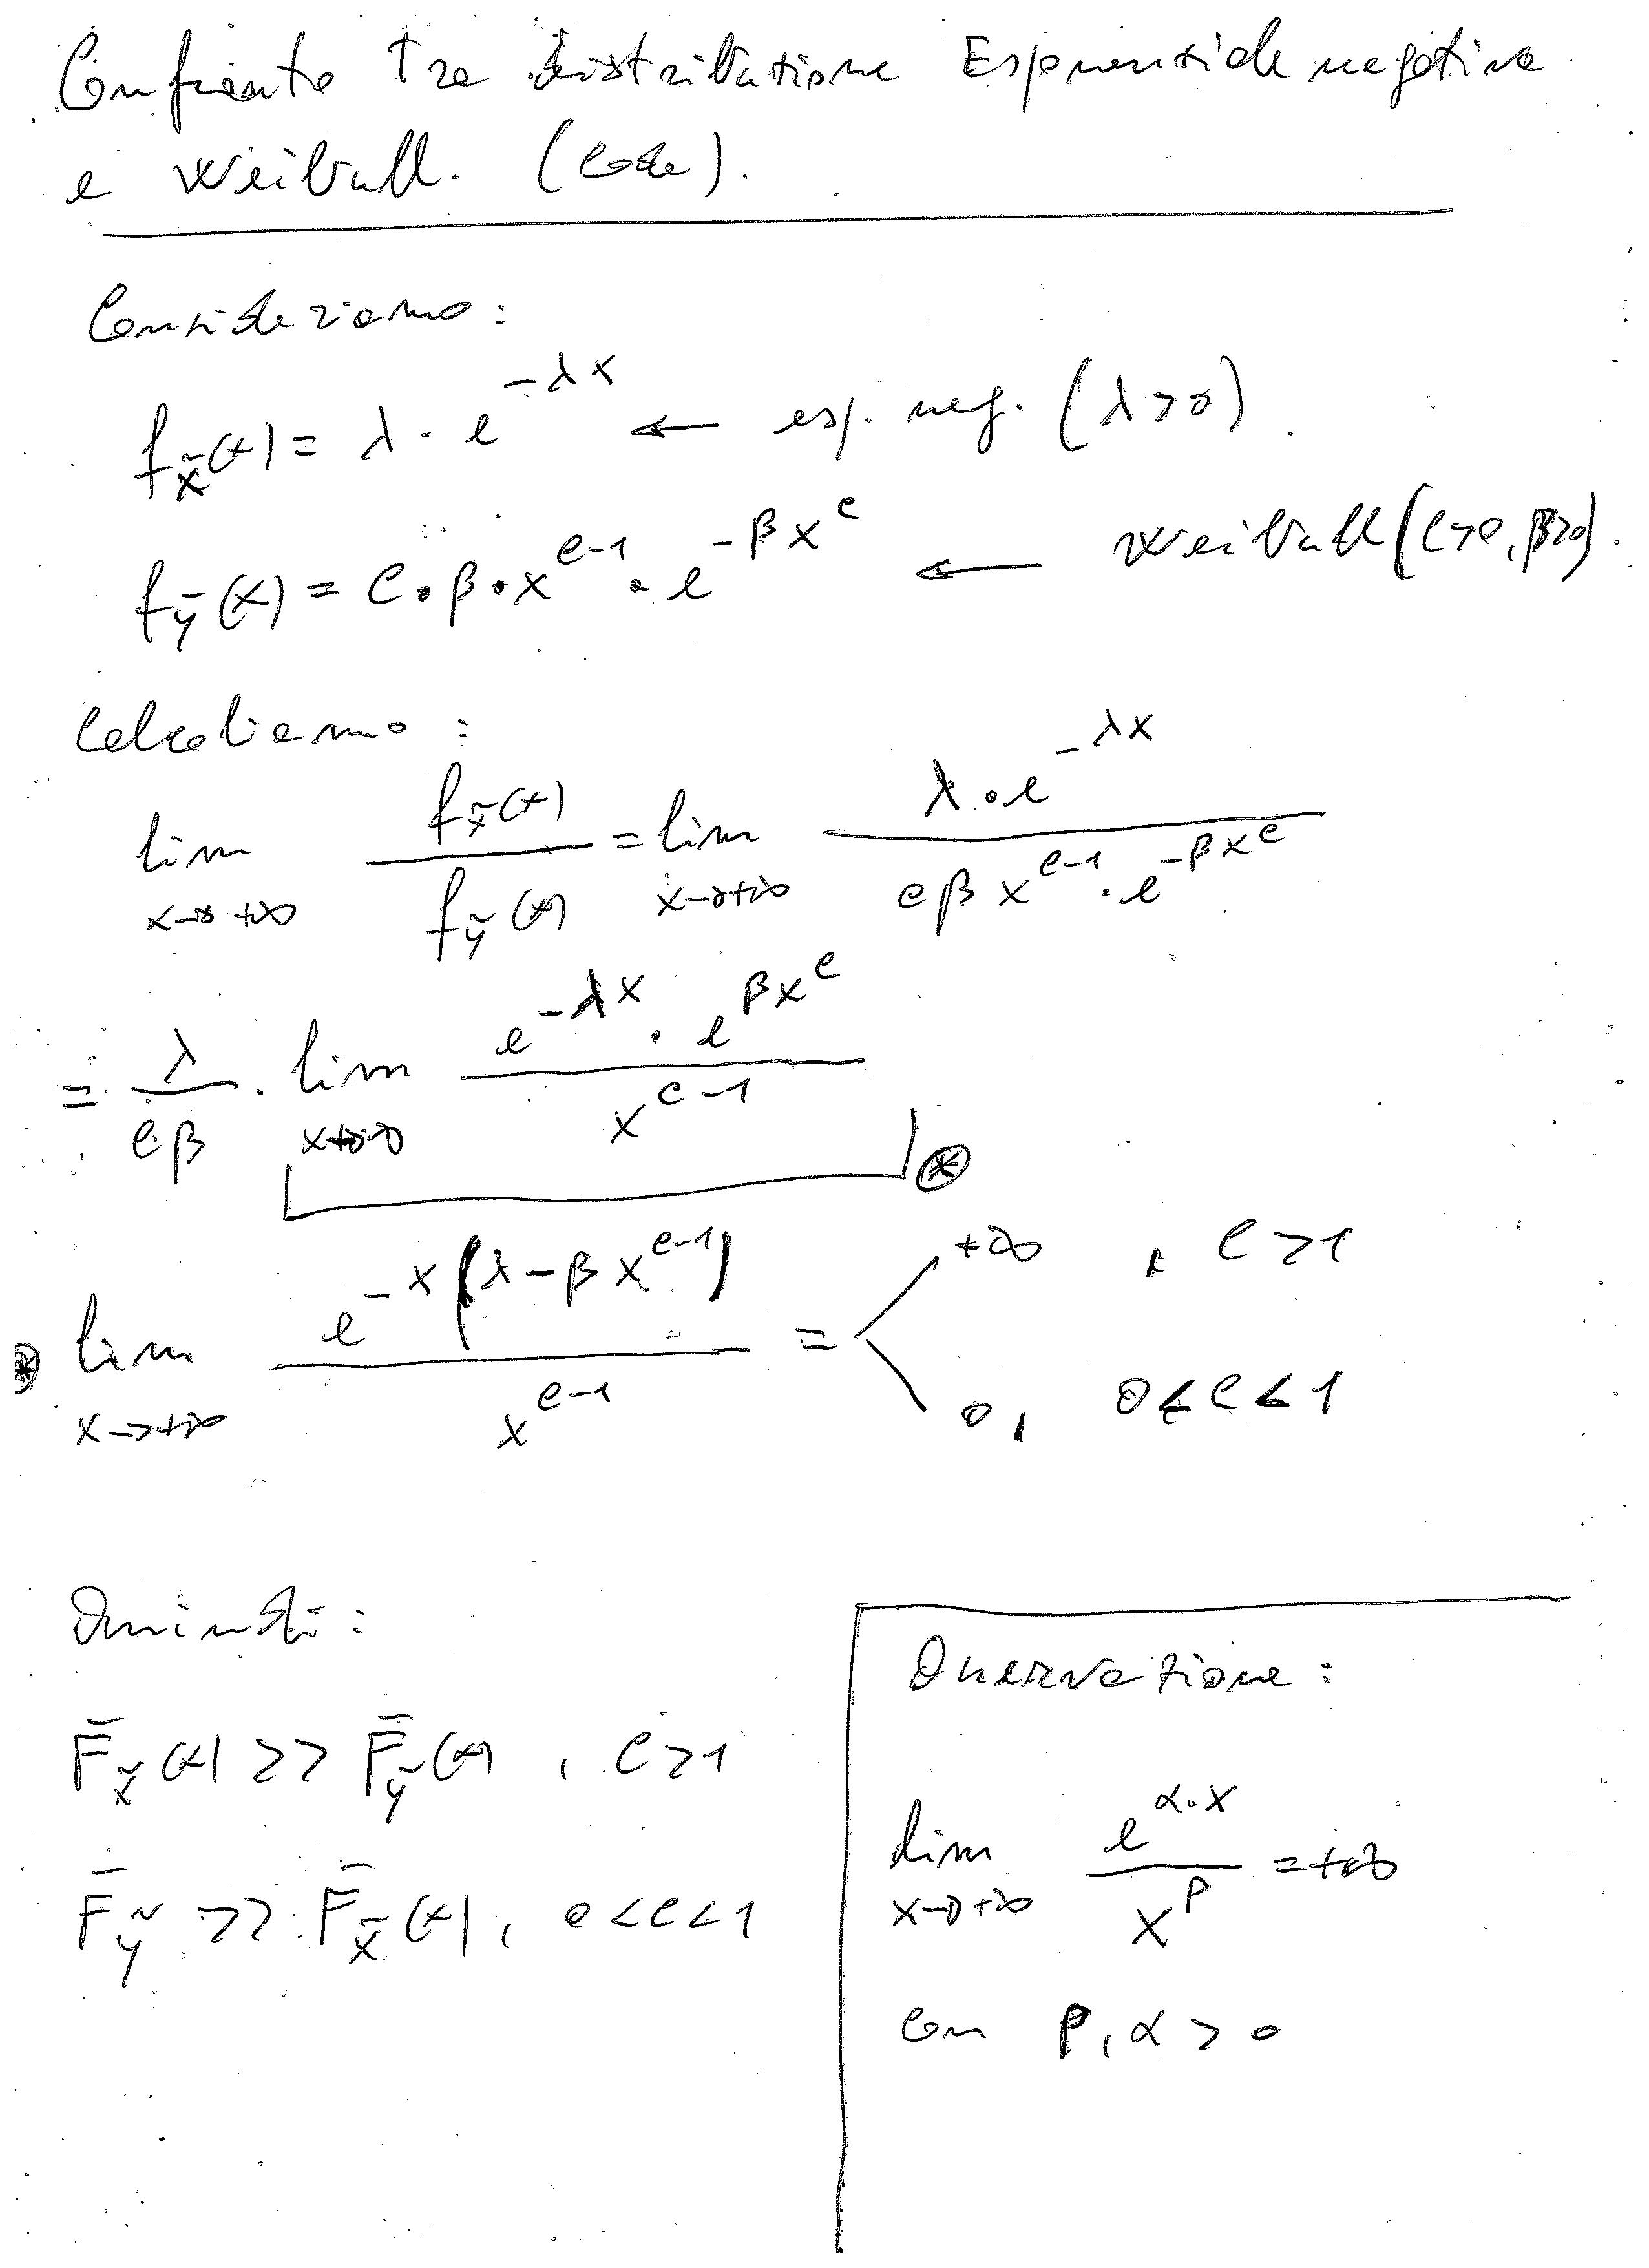 Confronto tra distribuzione Esponenziale negativa
e Weibull. (Code).
Consideriamo:
f_X̃(x) = λ · e^{-λx} ← esp. neg. (λ>0).
f_Ỹ(x) = c · β · x^{c-1} · e^{-βx^c} ← Weibull (c>0, β>0).
Calcoliamo:
lim_{x→+∞} f_X̃(x) / f_Ỹ(x) = lim_{x→+∞} λ · e^{-λx} / (cβ x^{c-1} · e^{-βx^c})
= λ/(cβ) · lim_{x→+∞} (e^{-λx} · e^{βx^c}) / x^{c-1} ⊛
⊛ lim_{x→+∞} e^{-x(λ-βx^{c-1})} / x^{c-1} = < +∞ , c>1
0, 0<c<1
Quindi:
F̄_X̃(x) >> F̄_Ỹ(x), c>1
F̄_Ỹ >> F̄_X̃(x), 0<c<1
Osservazione:
lim_{x→+∞} e^{α·x} / x^p = +∞
con p, α > 0